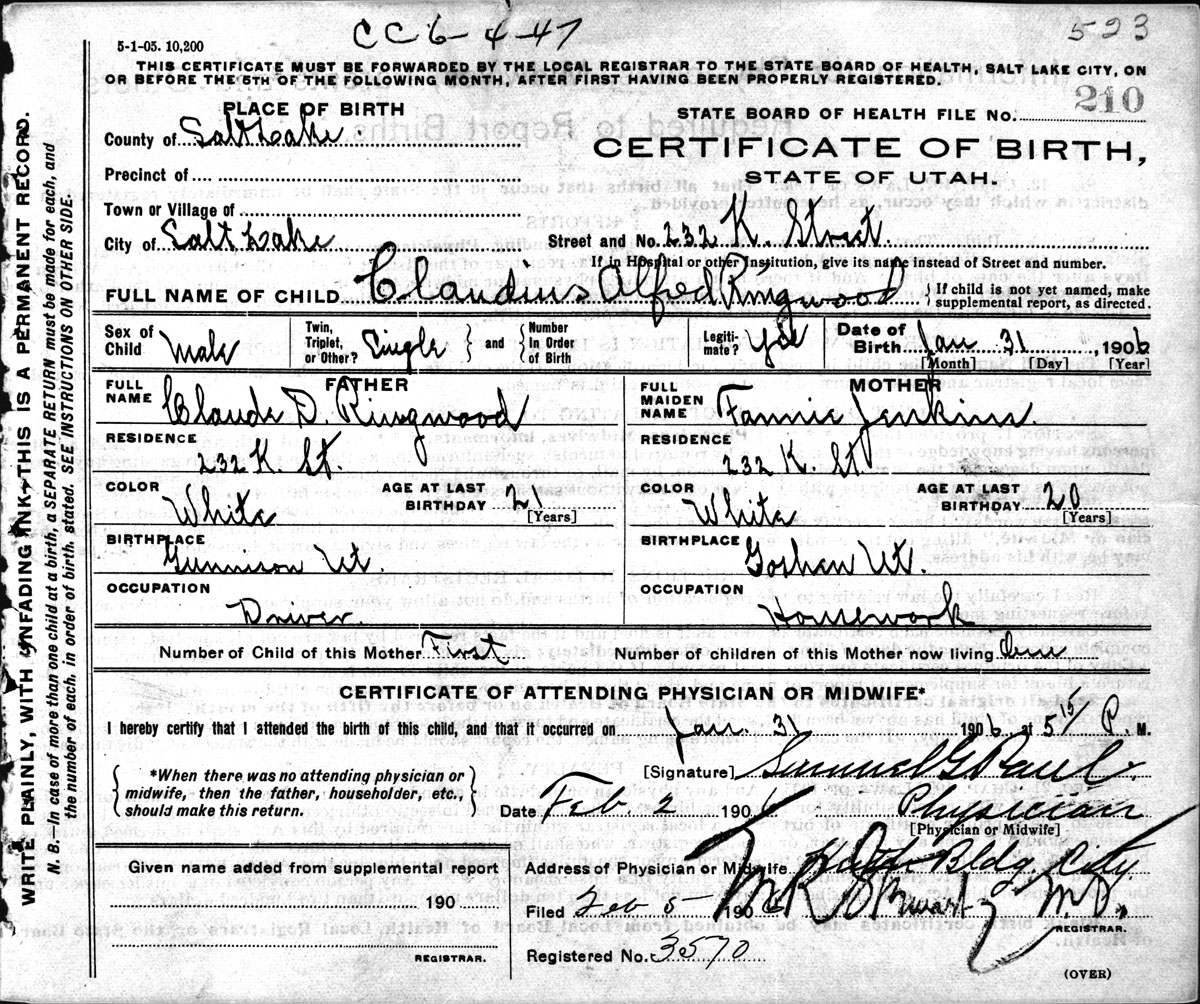 CC 6-4-47
523
5-1-05. 10,200
THIS CERTIFICATE MUST BE FORWARDED BY THE LOCAL REGISTRAR TO THE STATE BOARD OF HEALTH, SALT LAKE CITY, ON
OR BEFORE THE 5TH OF THE FOLLOWING MONTH, AFTER FIRST HAVING BEEN PROPERLY REGISTERED.
PLACE OF BIRTH
STATE BOARD OF HEALTH FILE No. 210
County of Salt Lake.
CERTIFICATE OF BIRTH,
STATE OF UTAH.
Precinct of
Town or Village of
City of Salt Lake
Street and No. 232 K. Street
If in Hospital or other Institution, give its name instead of Street and number.
FULL NAME OF CHILD Claudius Alfred Ringwood
{ If child is not yet named, make
supplemental report, as directed.
Sex of Child Male
Twin, Triplet, or Other? Single } and { Number In Order of Birth
Legiti-mate? Yes
Date of Birth Jan 31, 1906
[Month] [Day] [Year]
FATHER
MOTHER
FULL NAME Claude D. Ringwood
FULL MAIDEN NAME Fannie Jenkins.
RESIDENCE 232 K. St.
RESIDENCE 232 K. St.
COLOR White
AGE AT LAST BIRTHDAY 21 [Years]
COLOR White
AGE AT LAST BIRTHDAY 20 [Years]
BIRTHPLACE Gunnison Ut.
BIRTHPLACE Goshen Ut.
OCCUPATION Driver.
OCCUPATION Housework
Number of Child of this Mother First
Number of children of this Mother now living One
CERTIFICATE OF ATTENDING PHYSICIAN OR MIDWIFE*
I hereby certify that I attended the birth of this child, and that it occurred on Jan. 31 1906 at 5 15 P. M.
*When there was no attending physician or
midwife, then the father, householder, etc.,
should make this return.
[Signature] Samuel G Paul.
Date Feb. 2 1906
Physician
[Physician or Midwife]
Given name added from supplemental report
190
REGISTRAR.
Address of Physician or Midwife Bldg. City
Filed Feb 5 1906
M.D.
REGISTRAR.
Registered No. 3570
(OVER)
WRITE PLAINLY, WITH UNFADING INK—THIS IS A PERMANENT RECORD.
N. B. In case of more than one child at a birth, a SEPARATE RETURN must be made for each, and
the number of each, in order of birth, stated. SEE INSTRUCTIONS ON OTHER SIDE.